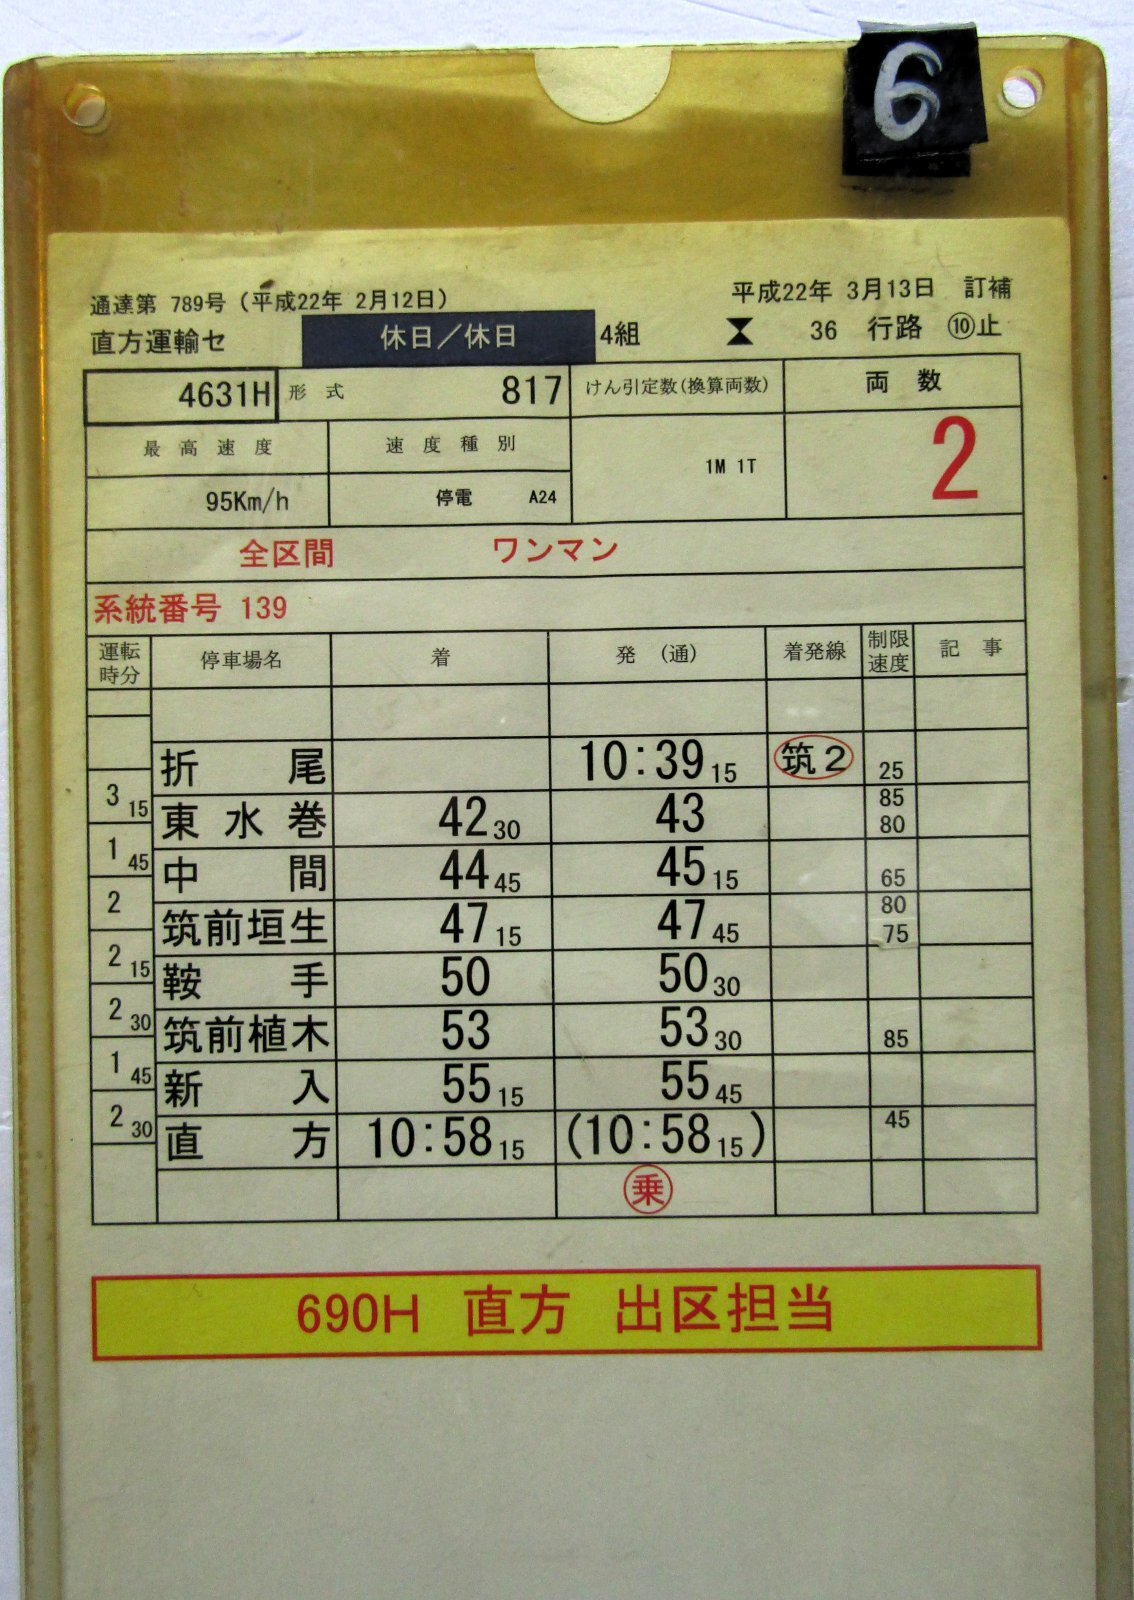 6
通達第 789号 (平成22年 2月12日) 平成22年 3月13日 訂補
直方運輸セ 休日／休日 4組 36 行路 ⑩止
4631H 形式 817 けん引定数(換算両数) 両数
最高速度 速度種別 1M 1T 2
95Km/h 停電 A24
全区間 ワンマン
系統番号 139
運転時分 停車場名 着 発 (通) 着発線 制限速度 記事
折尾 10:39 15 筑2 25
3 15
東水巻 42 30 43 85 80
1 45
中間 44 45 45 15 65
2
筑前垣生 47 15 47 45 80 75
2 15
鞍手 50 50 30
2 30
筑前植木 53 53 30 85
1 45
新入 55 15 55 45
2 30
直方 10:58 15 (10:58 15) 45
乗
690H 直方 出区担当